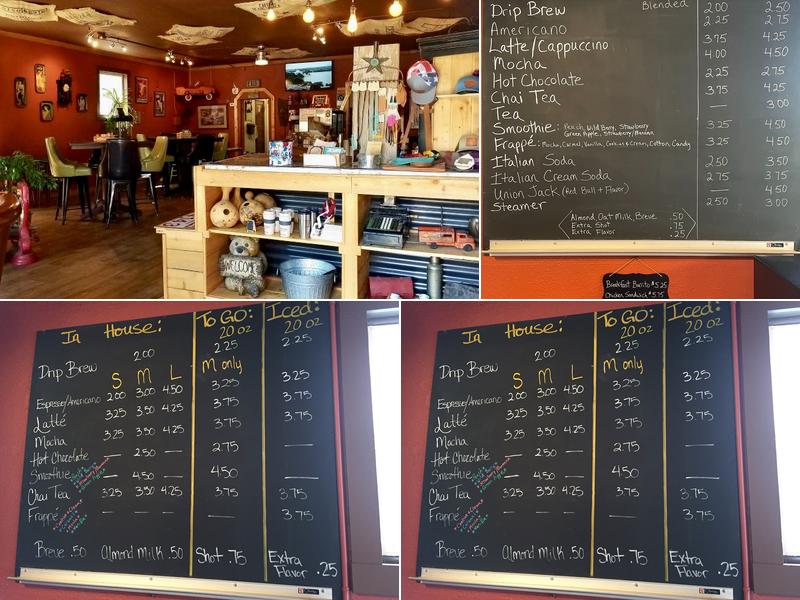 WELCOME
Blended
Drip Brew 2.00 2.50
Americano 2.25 2.75
Latte/Cappuccino 3.75 4.25
Mocha 4.00 4.50
Hot Chocolate 2.25 2.75
Chai Tea 3.75 4.25
Tea — 3.00
Smoothie: Peach, Wild Berry, Strawberry
Green Apple, Strawberry/Banana
Frappé: Mocha, Carmel, Vanilla, Cookies & Cream, Cotton Candy 3.25 4.50
Italian Soda 2.50 3.50
Italian Cream Soda 2.75 3.75
Union Jack (Red Bull + Flavor) — 4.50
Steamer 2.50 3.00
Almond, Oat Milk, Breve .50
Extra Shot .75
Extra Flavor .25
Breakfast Burrito $5.25
Chicken Sandwich $5.75
In House: To Go: Iced:
20 oz 20 oz
Drip Brew 2.00 2.25 2.25
S M L M only
Espresso/Americano 2.00 3.00 4.50 3.25 3.25
Latté 3.25 3.50 4.25 3.75 3.75
Mocha 3.25 3.50 4.25 3.75 3.75
Hot Chocolate — 2.50 — 2.75 —
Smoothie — 4.50 — 4.50 —
Chai Tea 3.25 3.50 4.25 3.75 3.75
Frappé — — — — 3.75
Breve .50 Almond Milk .50 Shot .75 Extra
Flavor .25
In House: To Go: Iced:
20 oz 20 oz
Drip Brew 2.00 2.25 2.25
S M L M only
Espresso/Americano 2.00 3.00 4.50 3.25 3.25
Latté 3.25 3.50 4.25 3.75 3.75
Mocha 3.25 3.50 4.25 3.75 3.75
Hot Chocolate — 2.50 — 2.75 —
Smoothie — 4.50 — 4.50 —
Chai Tea 3.25 3.50 4.25 3.75 3.75
Frappé — — — — 3.75
Breve .50 Almond Milk .50 Shot .75 Extra
Flavor .25